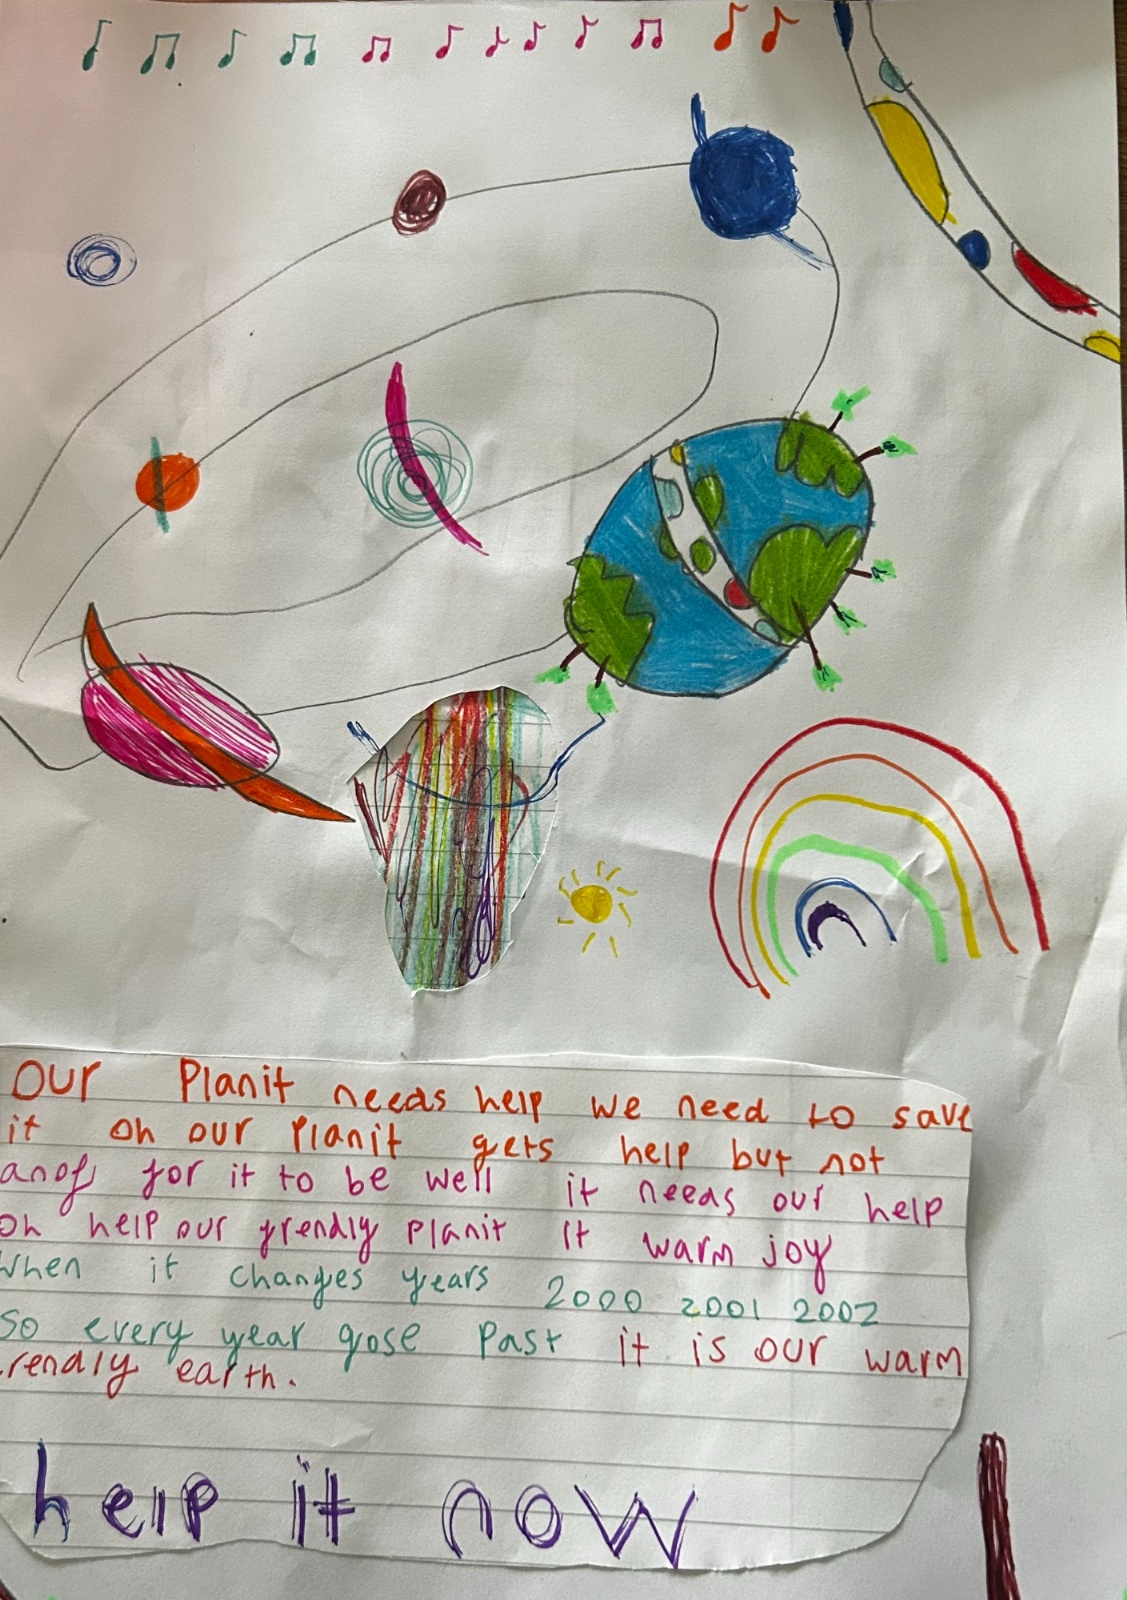 Our Planit needs help we need to save
it oh our Planit gets help but not
anof for it to be well it needs our help
oh help our frendly planit it warm joy
when it changes years 2000 2001 2002
so every year gose past it is our warm
rendly earth.
help it now